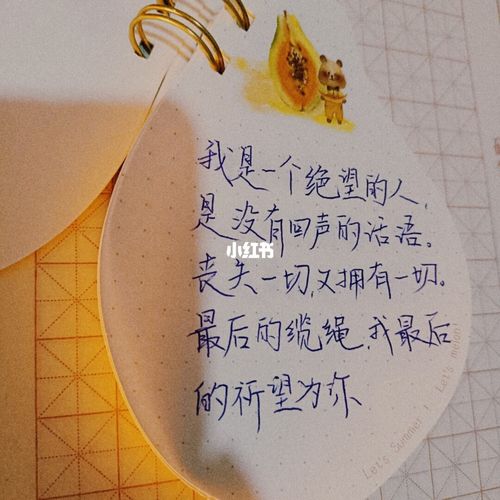 我是一个绝望的人,
是没有回声的话语。
丧失一切,又拥有一切。
最后的缆绳,我最后
的祈望为你
小红书
Let's Summer!
Let's melon!